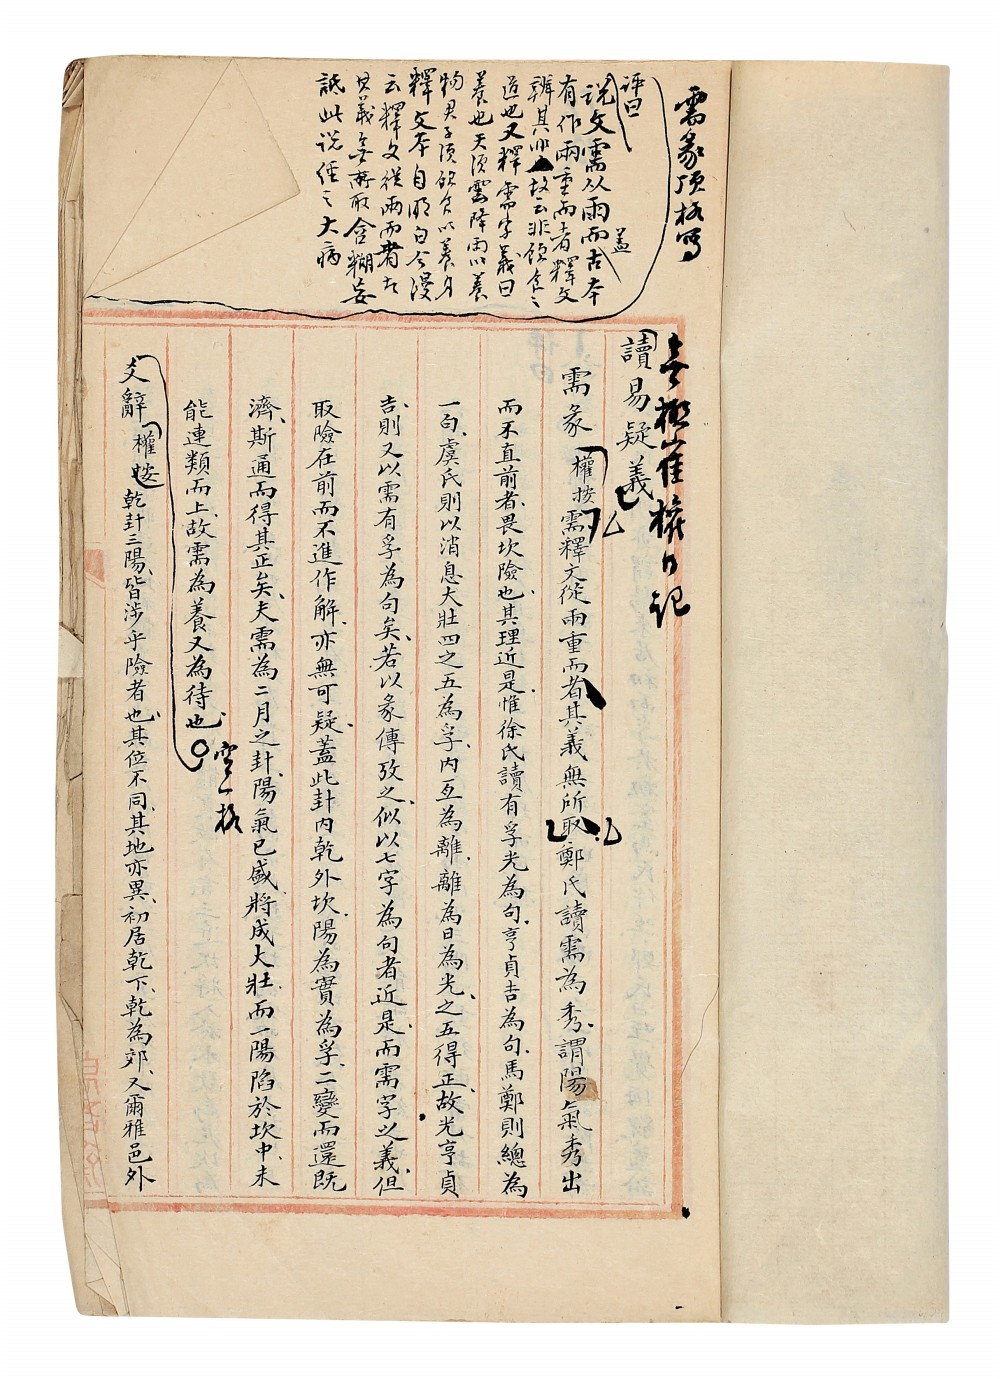 需彖頂格寫
評曰
說文需从雨而古本蓋
有作雨重而者釋文
辨其非故云非飲食之
道也又釋需字義曰
養也天須雲降雨以養
物君子須飲食以養身
釋文本自明白今漫
云釋文從雨而者
其義無所取含糊妄
詆此說經之大病
崔權日記
讀易疑義
需彖權按需釋文從雨重而者其義無所取鄭氏讀需為秀謂陽氣秀出
而不直前者畏坎險也其理近是惟徐氏讀有孚光為句亨貞吉為句馬鄭則總為
一句虞氏則以消息大壯四之五為孚內互為離離為日為光之五得正故光亨貞
吉則又以需有孚為句矣若以彖傳攷之似以七字為句者近是而需字之義但
取險在前而不進作解亦無可疑蓋此卦內乾外坎陽為實為孚二變而還既
濟斯通而得其正矣夫需為二月之卦陽氣已盛將成大壯而一陽陷於坎中未
能連類而上故需為養又為待也
空一格
爻辭權按乾卦三陽皆涉乎險者也其位不同其地亦異初居乾下乾為郊又爾雅邑外